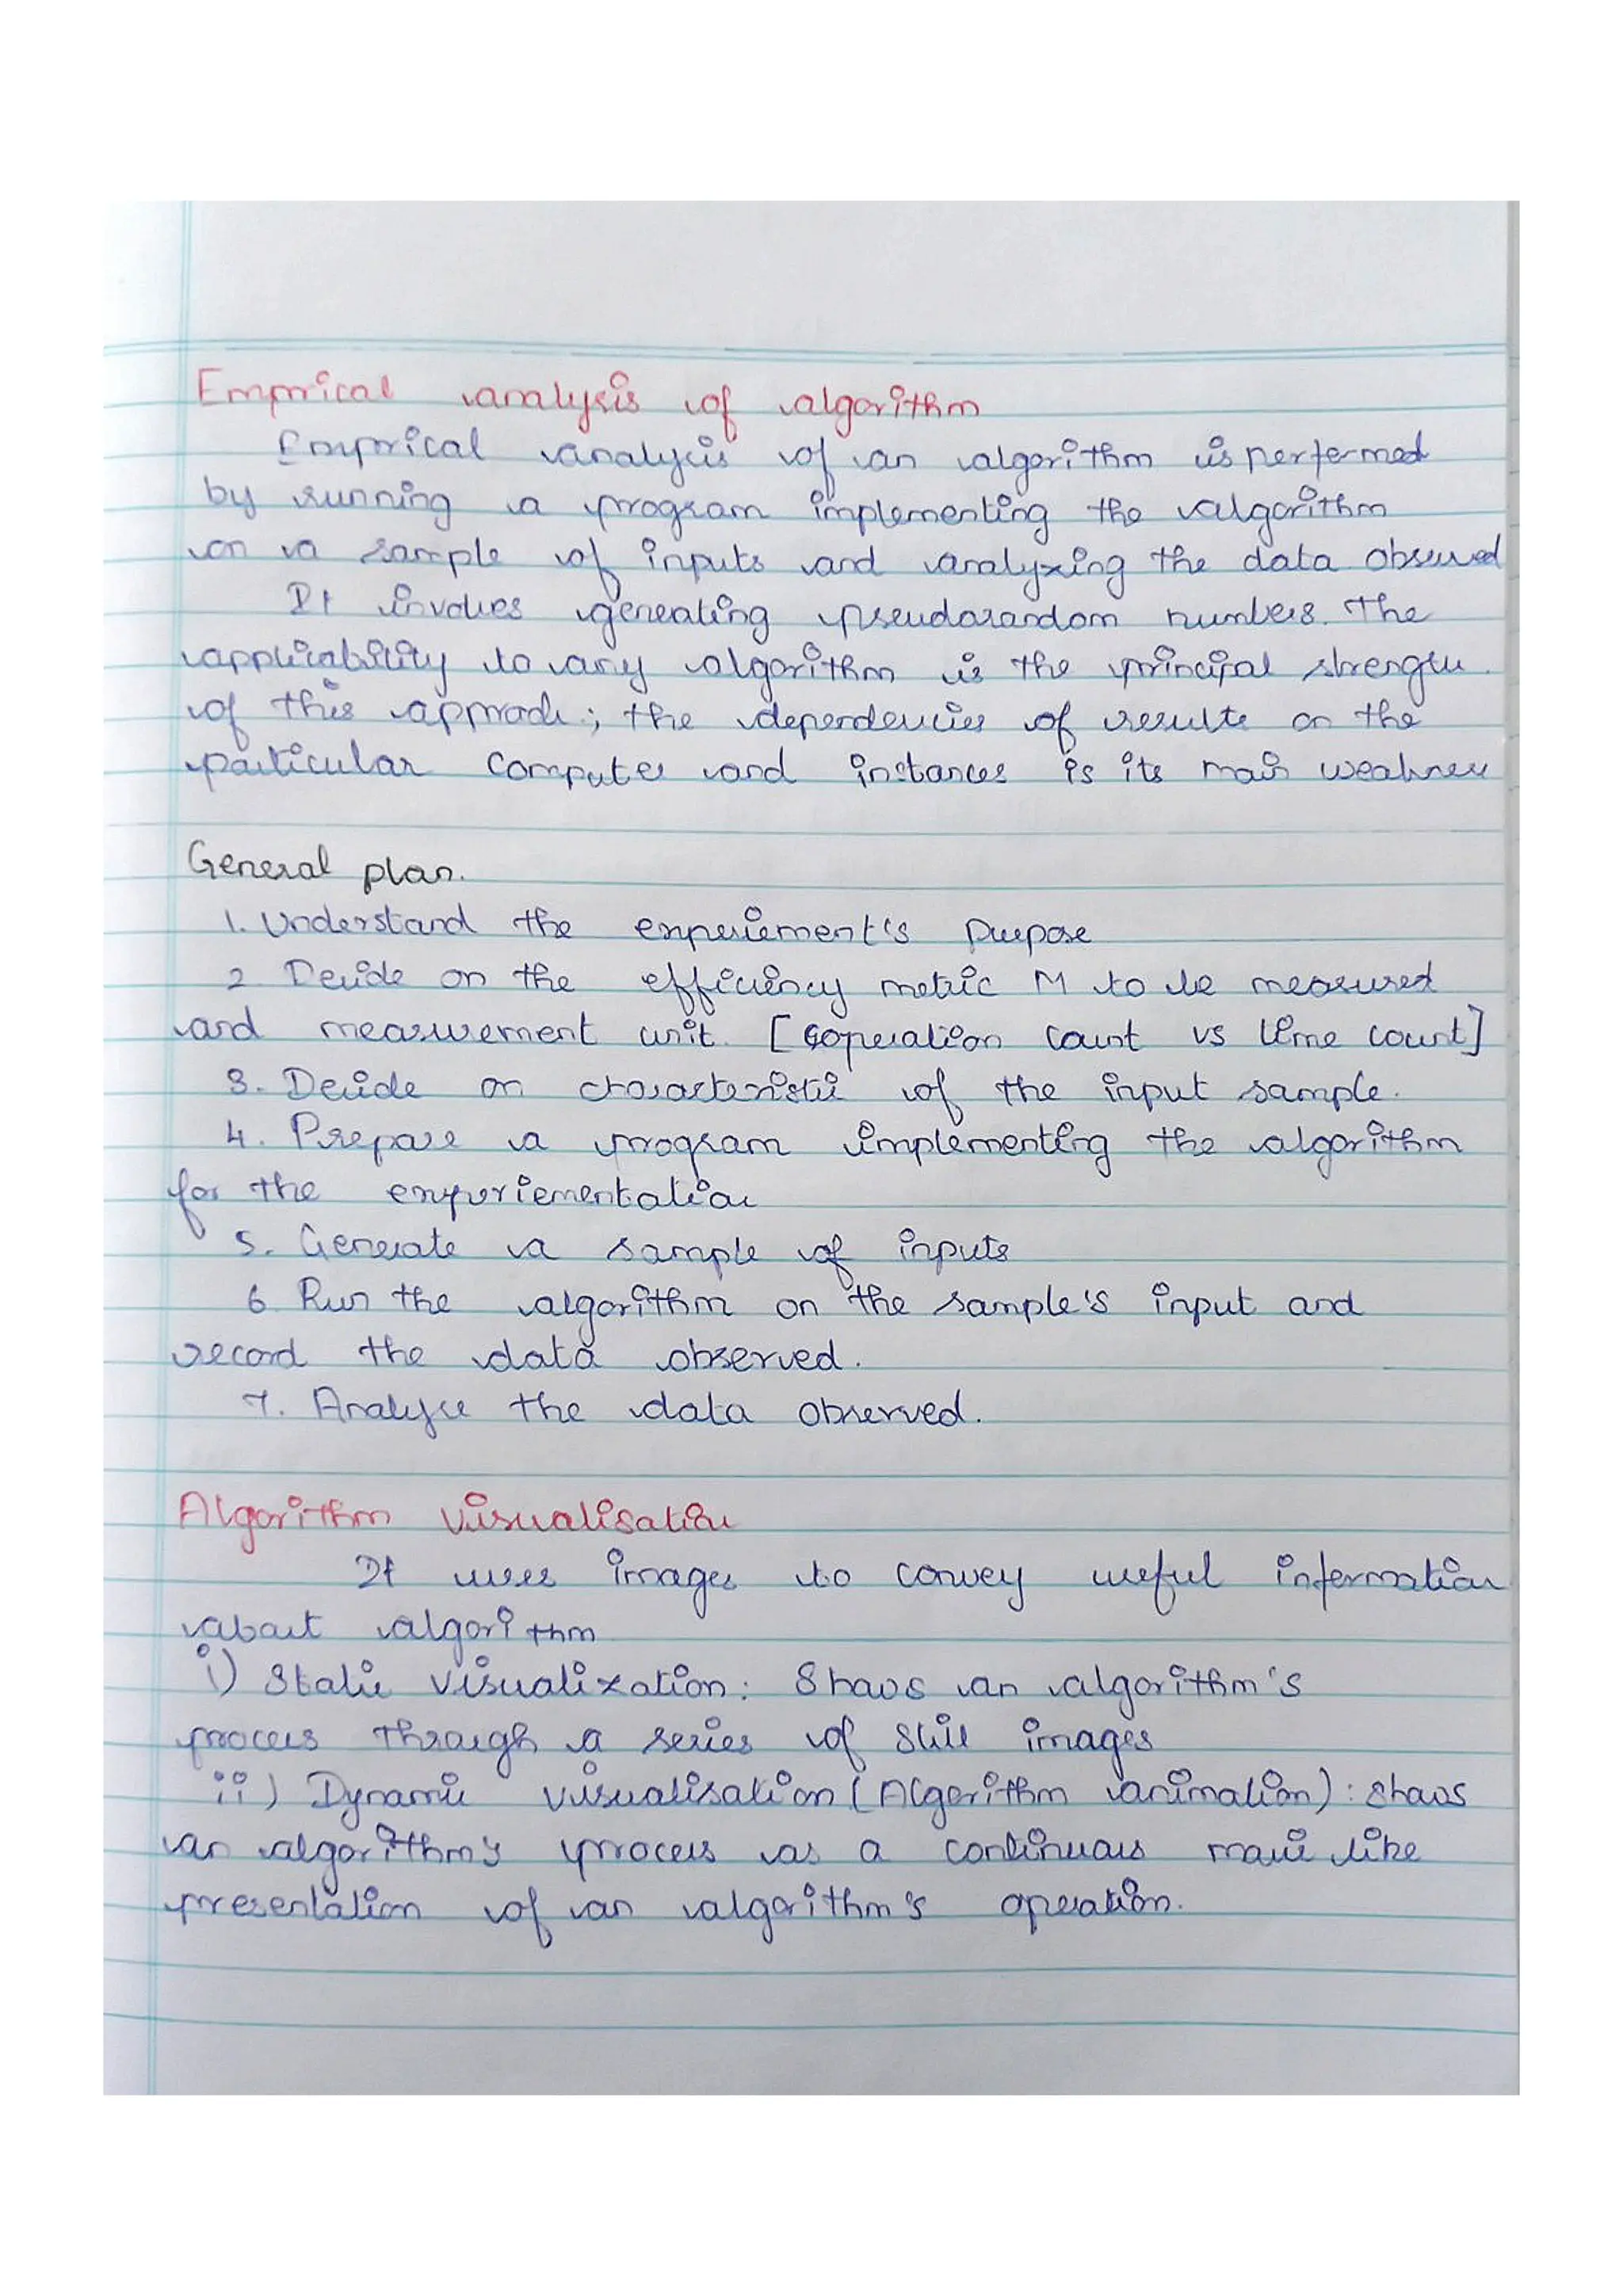 Emprical analysis of algorithm
Emprical analysis of an algorithm is performed
by running a program implementing the algorithm
on a sample of inputs and analyzing the data observed
It involves generating pseudorandom numbers. The
applicability to any algorithm is the principal strength
of this approach; the dependencies of results on the
particular computer and instances is its main weakness
General plan.
1. Understand the experiment's purpose
2. Decide on the efficiency metric M to be measured
and measurement unit. [operation count vs time count]
3. Decide on characteristic of the input sample.
4. Prepare a program implementing the algorithm
for the experiementation
5. Generate a sample of inputs
6. Run the algorithm on the sample's input and
record the data observed.
7. Analyse the data observed.
Algorithm Visualisation
It uses images to convey useful information
about algorithm
i) Static visualization: Shows an algorithm's
process through a series of still images
ii) Dynamic visualisation (Algorithm animation): shows
an algorithm's process as a continuous movie like
presentation of an algorithm's operation.